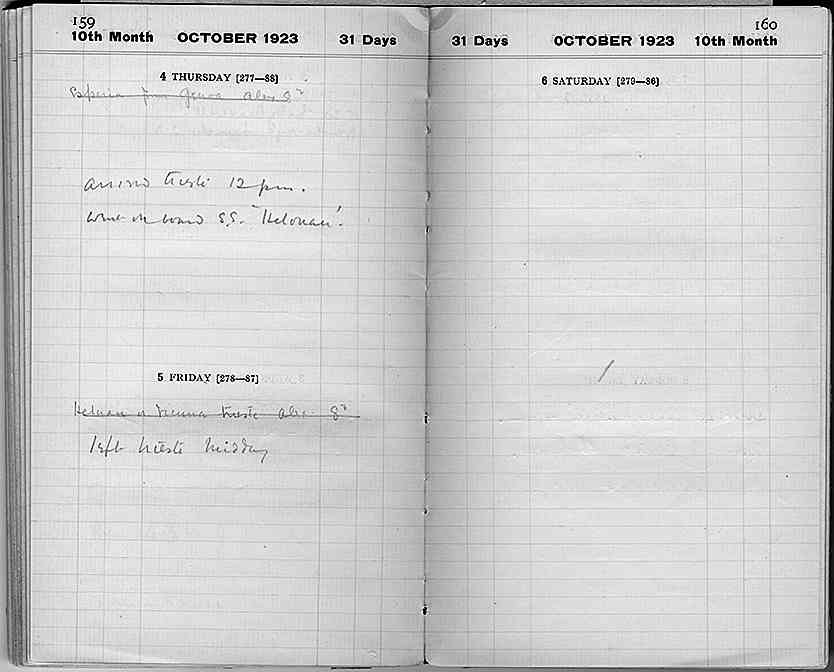 159
10th Month OCTOBER 1923 31 Days
4 THURSDAY [277—88]
Esperia from Genoa Alex 8th
arrived trieste 12 pm.
went on board S.S. "Helouan".
5 FRIDAY [278—87]
Helouan or Vienna trieste Alex 8th
left trieste midday
160
31 Days OCTOBER 1923 10th Month
6 SATURDAY [279—86]